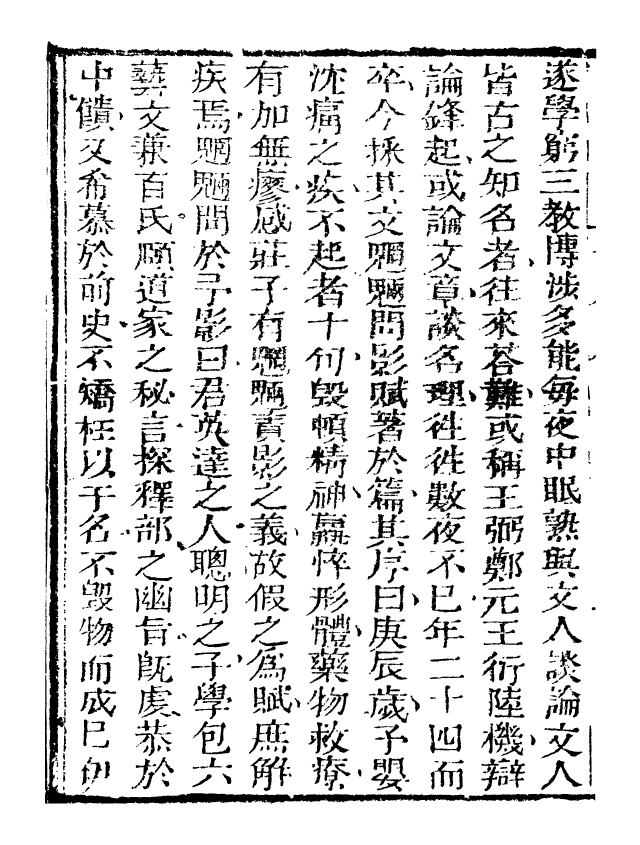 遂學窮三教博涉多能每夜中眠熟與文人談論文人
皆古之知名者往來答難或稱王弼鄭元王衍陸機辯
論鋒起或論文章談名理往往數夜不已年二十四而
卒今採其文魍魎問影賦著於篇其序曰庚辰歲予嬰
沈痼之疾不起者十旬毀頓精神羸悴形體藥物救療
有加無瘳感莊子有魍魎責影之義故假之爲賦庶解
疾焉魍魎問於予影曰君英達之人聰明之子學包六
藝文兼百氏賾道家之秘言探釋部之幽旨旣虔恭於
中饋又希慕於前史不矯枉以干名不毀物而成已伊